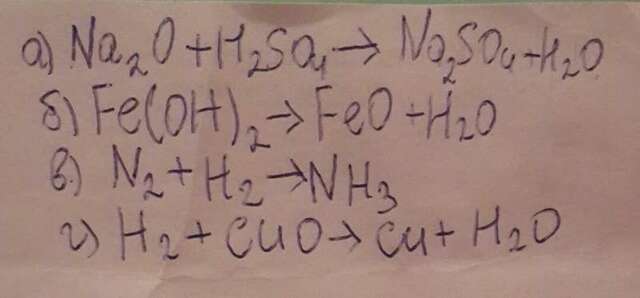 а) Na₂O + H₂SO₄ → Na₂SO₄ + H₂O
б) Fe(OH)₂ → FeO + H₂O
в) N₂ + H₂ → NH₃
г) H₂ + CuO → Cu + H₂O